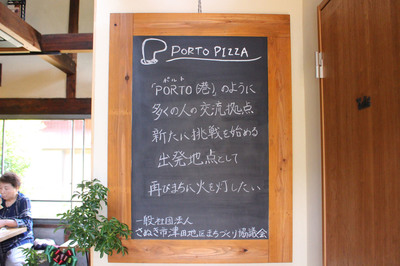 PORTO PIZZA
ポルト
「PORTO(港)」のように
多くの人の交流拠点
新たに挑戦を始める
出発地点として
再びまちに火を灯したい
一般社団法人
さぬき市津田地区まちづくり協議会